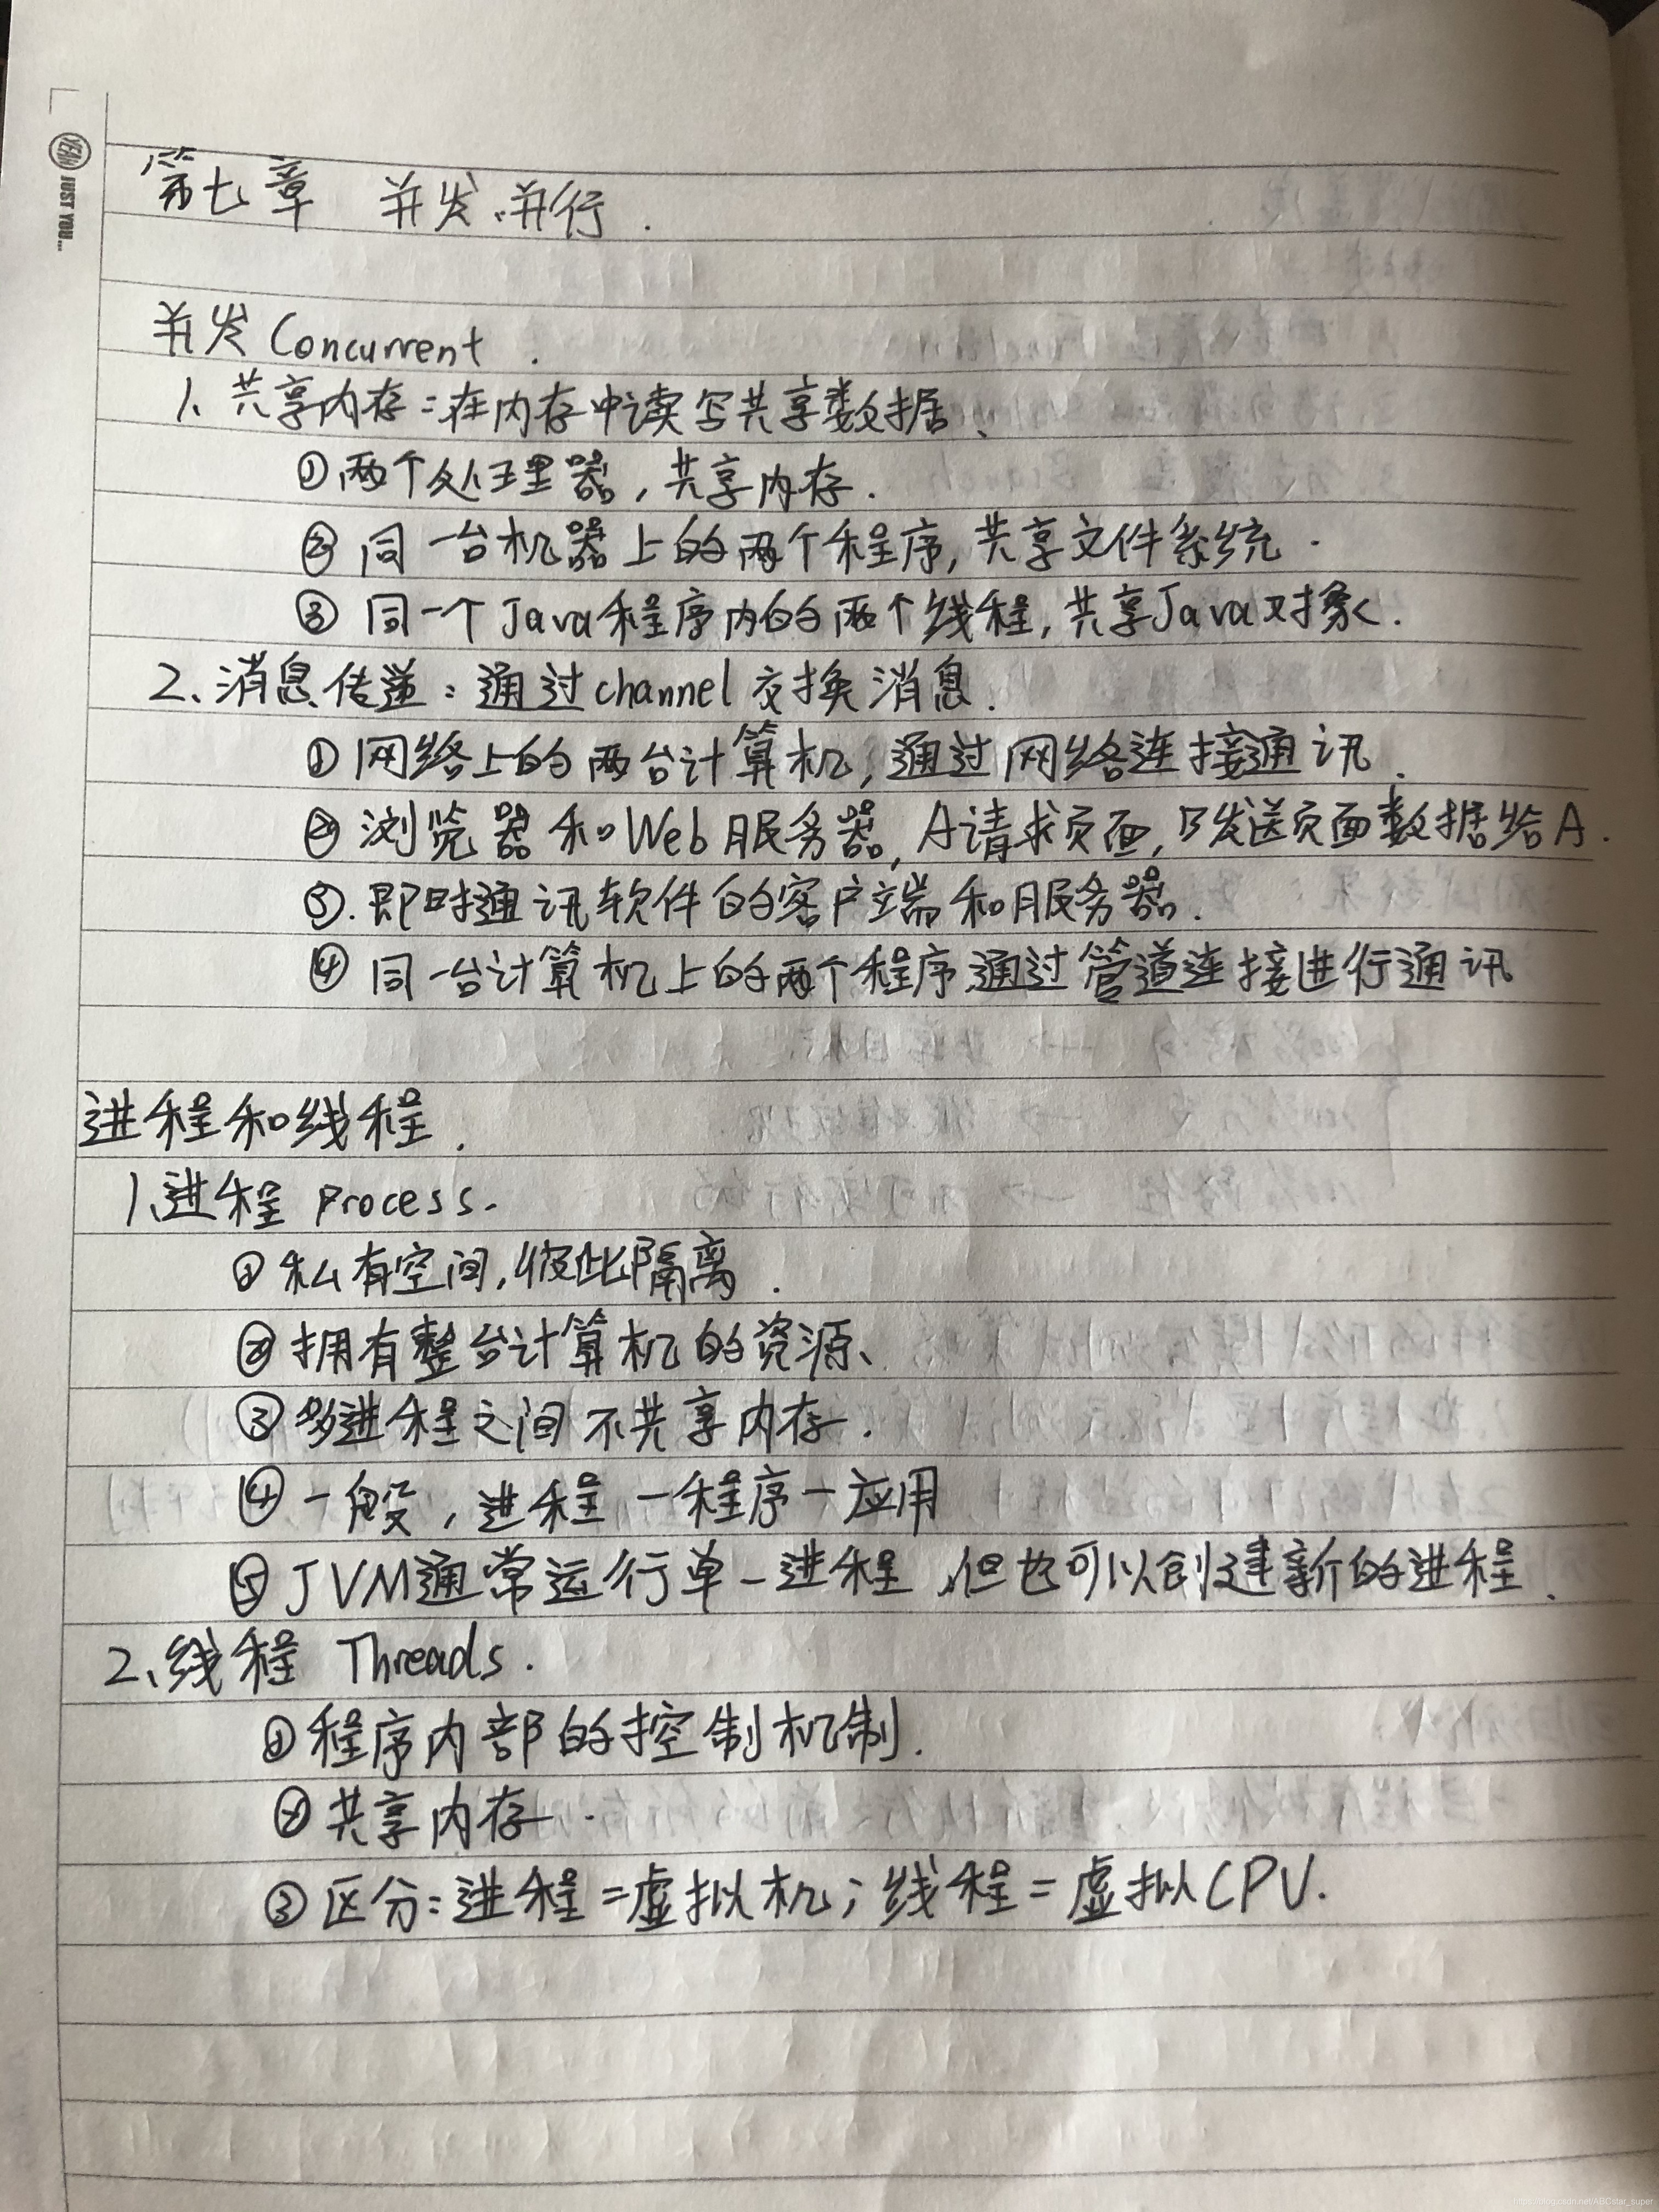 YEAH JUST YOU...
第七章 并发、并行.
并发 Concurrent.
1、共享内存:在内存中读写共享数据、
①两个处理器,共享内存.
②同一台机器上的两个程序,共享文件系统.
③同一个Java程序内的两个线程,共享Java对象.
2、消息传递:通过channel交换消息.
①网络上的两台计算机,通过网络连接通讯.
②浏览器和Web服务器,A请求页面,B发送页面数据给A.
③.即时通讯软件的客户端和服务器.
④同一台计算机上的两个程序,通过管道连接进行通讯
进程和线程.
1、进程 Process.
①私有空间,彼此隔离.
②拥有整台计算机的资源、
③多进程之间不共享内存.
④一般,进程一程序一应用
⑤JVM通常运行单一进程,但也可以创建新的进程.
2、线程 Threads.
①程序内部的控制机制.
②共享内存.
③区分:进程=虚拟机;线程=虚拟CPU.
https://blog.csdn.net/ABCstar_super